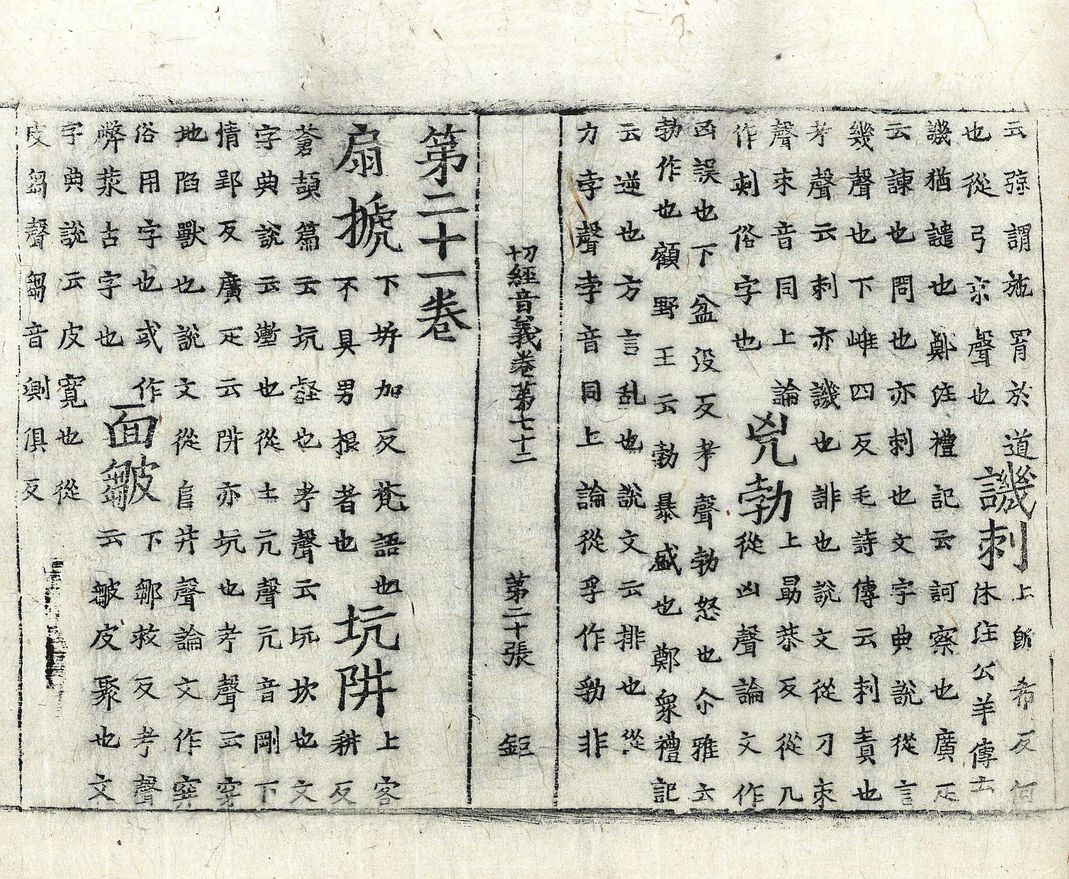 云弶謂施罥於道
也從弓京聲也
譏刺
上既希反何
休注公羊傳云
譏猶譴也鄭注禮記云訶察也廣疋
云諫也問也亦刺也文字典說從言
幾聲也下雌四反毛詩傳云刺責也
考聲云刺亦譏也誹也說文從刀朿
聲朿音同上論
作刺俗字也
兇勃
上勗恭反從儿
從凶聲論文作
凶誤也下盆没反考聲勃怒也尒雅云
勃作也顧野王云勃暴盛也鄭衆禮記
云逆也方言乱也說文云排也從
力孛聲孛音同上論從孚作勃非
切經音義卷第七十二 第二十張 鉅
第二十一卷
扇搋
下坼加反梵語也
不具男根者也
坑阱
上客
耕反
蒼頡篇云坑壑也考聲云坑坎也文
字典說云壍也從土亢聲亢音剛下
情郢反廣疋云阱亦坑也考聲云穽
地陷獸也說文從𨸏井聲論文作穽
俗用字也或作
古字也
面皺
下鄒救反考聲
云皺皮聚也文
字典說云皮寬也從
皮芻聲芻音惻俱反